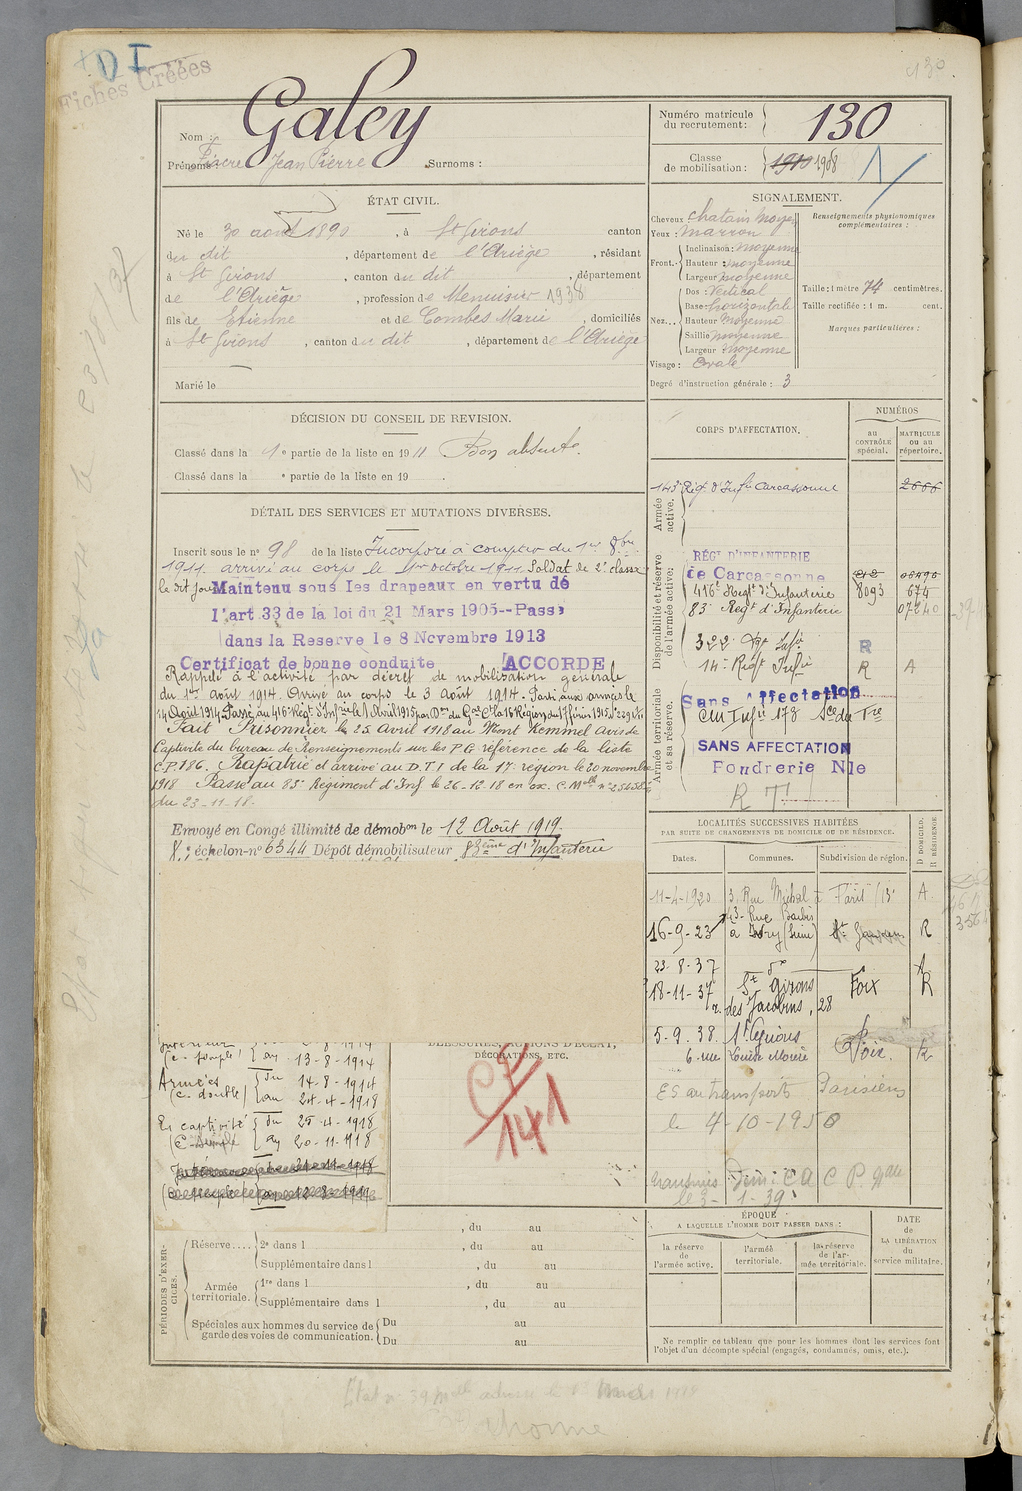 130
DI
Fiches Créées
Nom : Galey
Prénoms : Fiacre Jean Pierre Surnoms :
Numéro matricule du recrutement : 130
Classe de mobilisation : 1910 1908 1
ÉTAT CIVIL.
Né le 30 août 1890, à St Girons canton
du dit, département de l'Ariège, résidant
à St Girons, canton du dit, département
de l'Ariège, profession de Menuisier 1938
fils de Etienne et de Combes Marie, domiciliés
à St Girons, canton du dit, département de l'Ariège
Marié le
SIGNALEMENT.
Cheveux chatain moyen
Yeux : marron
Front. Inclinaison : moyenne
Hauteur : moyenne
Largeur moyenne
Nez... Dos : Vertical
Base : horizontale
Hauteur Moyenne
Saillie moyenne
Largeur moyenne
Visage : Ovale
Degré d'instruction générale : 3
Renseignements physionomiques complémentaires :
Taille : 1 mètre 74 centimètres.
Taille rectifiée : 1 m. cent.
Marques particulières :
DÉCISION DU CONSEIL DE REVISION.
Classé dans la 1e partie de la liste en 1911 Bon absent.
Classé dans la e partie de la liste en 19 .
DÉTAIL DES SERVICES ET MUTATIONS DIVERSES.
Inscrit sous le no 98 de la liste Incorporé à compter du 1er 8bre
1911. arrivé au corps le 1er octobre 1911. Soldat de 2e classe
le dit jour Maintenu sous les drapeaux en vertu de
l'art 33 de la loi du 21 Mars 1905--Passé
dans la Reserve le 8 Novembre 1913
Certificat de bonne conduite ACCORDE
Rappelé à l'activité par décret de mobilisation générale
du 1er août 1914. Arrivé au corps le 3 Août 1914. Parti aux armées le
14 Août 1914. Passé au 416e Régt d'Infie le 1 Avril 1915 par Don du Gal Ct la 16e Région du 17 février 1915
Fait Prisonnier le 25 Avril 1918 au Mont Kemmel Avis de
Captivité du bureau de Renseignements sur les P.G. référence de la liste
C.P.186. Rapatrié et arrivé au D.T.I de la 17e région le 20 novembre
1918 Passé au 83e Régiment d'Inf le 26-12-18 en ex. C. Mlle no 25458
du 23-11-18.
Envoyé en Congé illimité de démobon le 12 Août 1919.
échelon-no 6344 Dépôt démobilisateur 83ème d'Infanterie
CORPS D'AFFECTATION.
NUMÉROS
au CONTRÔLE spécial.
MATRICULE ou au répertoire.
Armée active.
143e Rég. d'Infie Carcassonne 2666
Disponibilité et réserve de l'armée active.
RÉGt D'INFANTERIE
de Carcassonne
416e Régt d'Infanterie 8093 674
83e Régt d'Infanterie 07240
322 Rgt Infie R
14e Régt Infie R A
Armée territoriale et sa réserve.
Sans Affectation
CM Infie 178
SANS AFFECTATION
Foudrerie Nle
R T
LOCALITÉS SUCCESSIVES HABITÉES
PAR SUITE DE CHANGEMENTS DE DOMICILE OU DE RÉSIDENCE.
Dates. Communes. Subdivision de région. D DOMICILE. R RÉSIDENCE.
11-4-1920 3, Rue Michal à Paris /13e A
16-9-23 43. Rue Barbès à Ivry (Seine) R
23-8-37 do
18-11-37 St Girons Foix R
r. des Jacobins, 28
5-9.38. St Girons Foix. R
6. rue Louise
ES au transports Parisiens
le 4-10-1950
le 3-1-39
BLESSURES, ACTIONS D'ÉCLAT, DÉCORATIONS, ETC.
141
Intérieur
(C. simple) au 13-8-1914
Armées du 14-8-1914
(C. double) au 24-4-1918
En captivité du 25-4-1918
(C. simple) au 20-11-1918
, du au
PÉRIODES D'EXERCICES.
Réserve.... 2e dans l , du au
Supplémentaire dans l , du au
Armée territoriale. 1re dans l , du au
Supplémentaire dans l , du au
Spéciales aux hommes du service de garde des voies de communication. Du au
Du au
ÉPOQUE
A LAQUELLE L'HOMME DOIT PASSER DANS :
la réserve de l'armée active.
l'armée territoriale.
la réserve de l'armée territoriale.
DATE de LA LIBÉRATION du service militaire.
Ne remplir ce tableau que pour les hommes dont les services font
l'objet d'un décompte spécial (engagés, condamnés, omis, etc.).